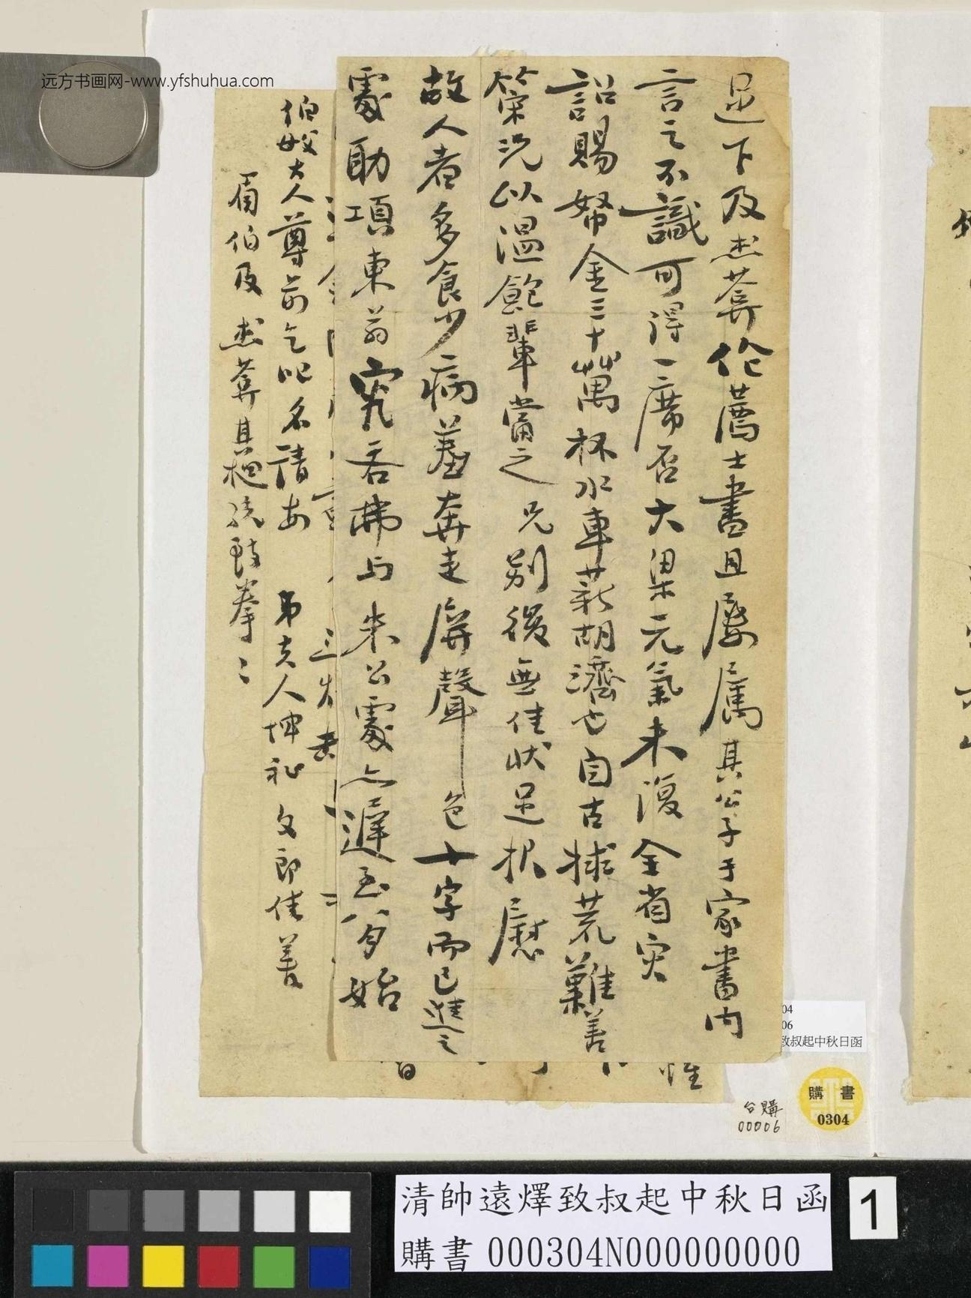 远方书画网-www.yfshuhua.com
足下及 伦荐士書且屡属其公子于家書内
言之不識可得一席否大梁元氣未復全省灾
詔賜帑金三十萬杯水車薪胡濟也自古捄荒難善
策況以温飽輩當之 兄别後無佳状足报慰
故人者多食少病羞奔走屏聲色十字而已進之
處助項東翁 吝弗与朱公處亦遲至八月始
伯母大人尊前乞叱名請安 弟夫人坤祉文郎佳善
眉伯及 其 統致拳二
惟
04
06
致叔起中秋日函
台購
00006
購書
0304
清帥遠燡致叔起中秋日函
購書 000304N000000000
1